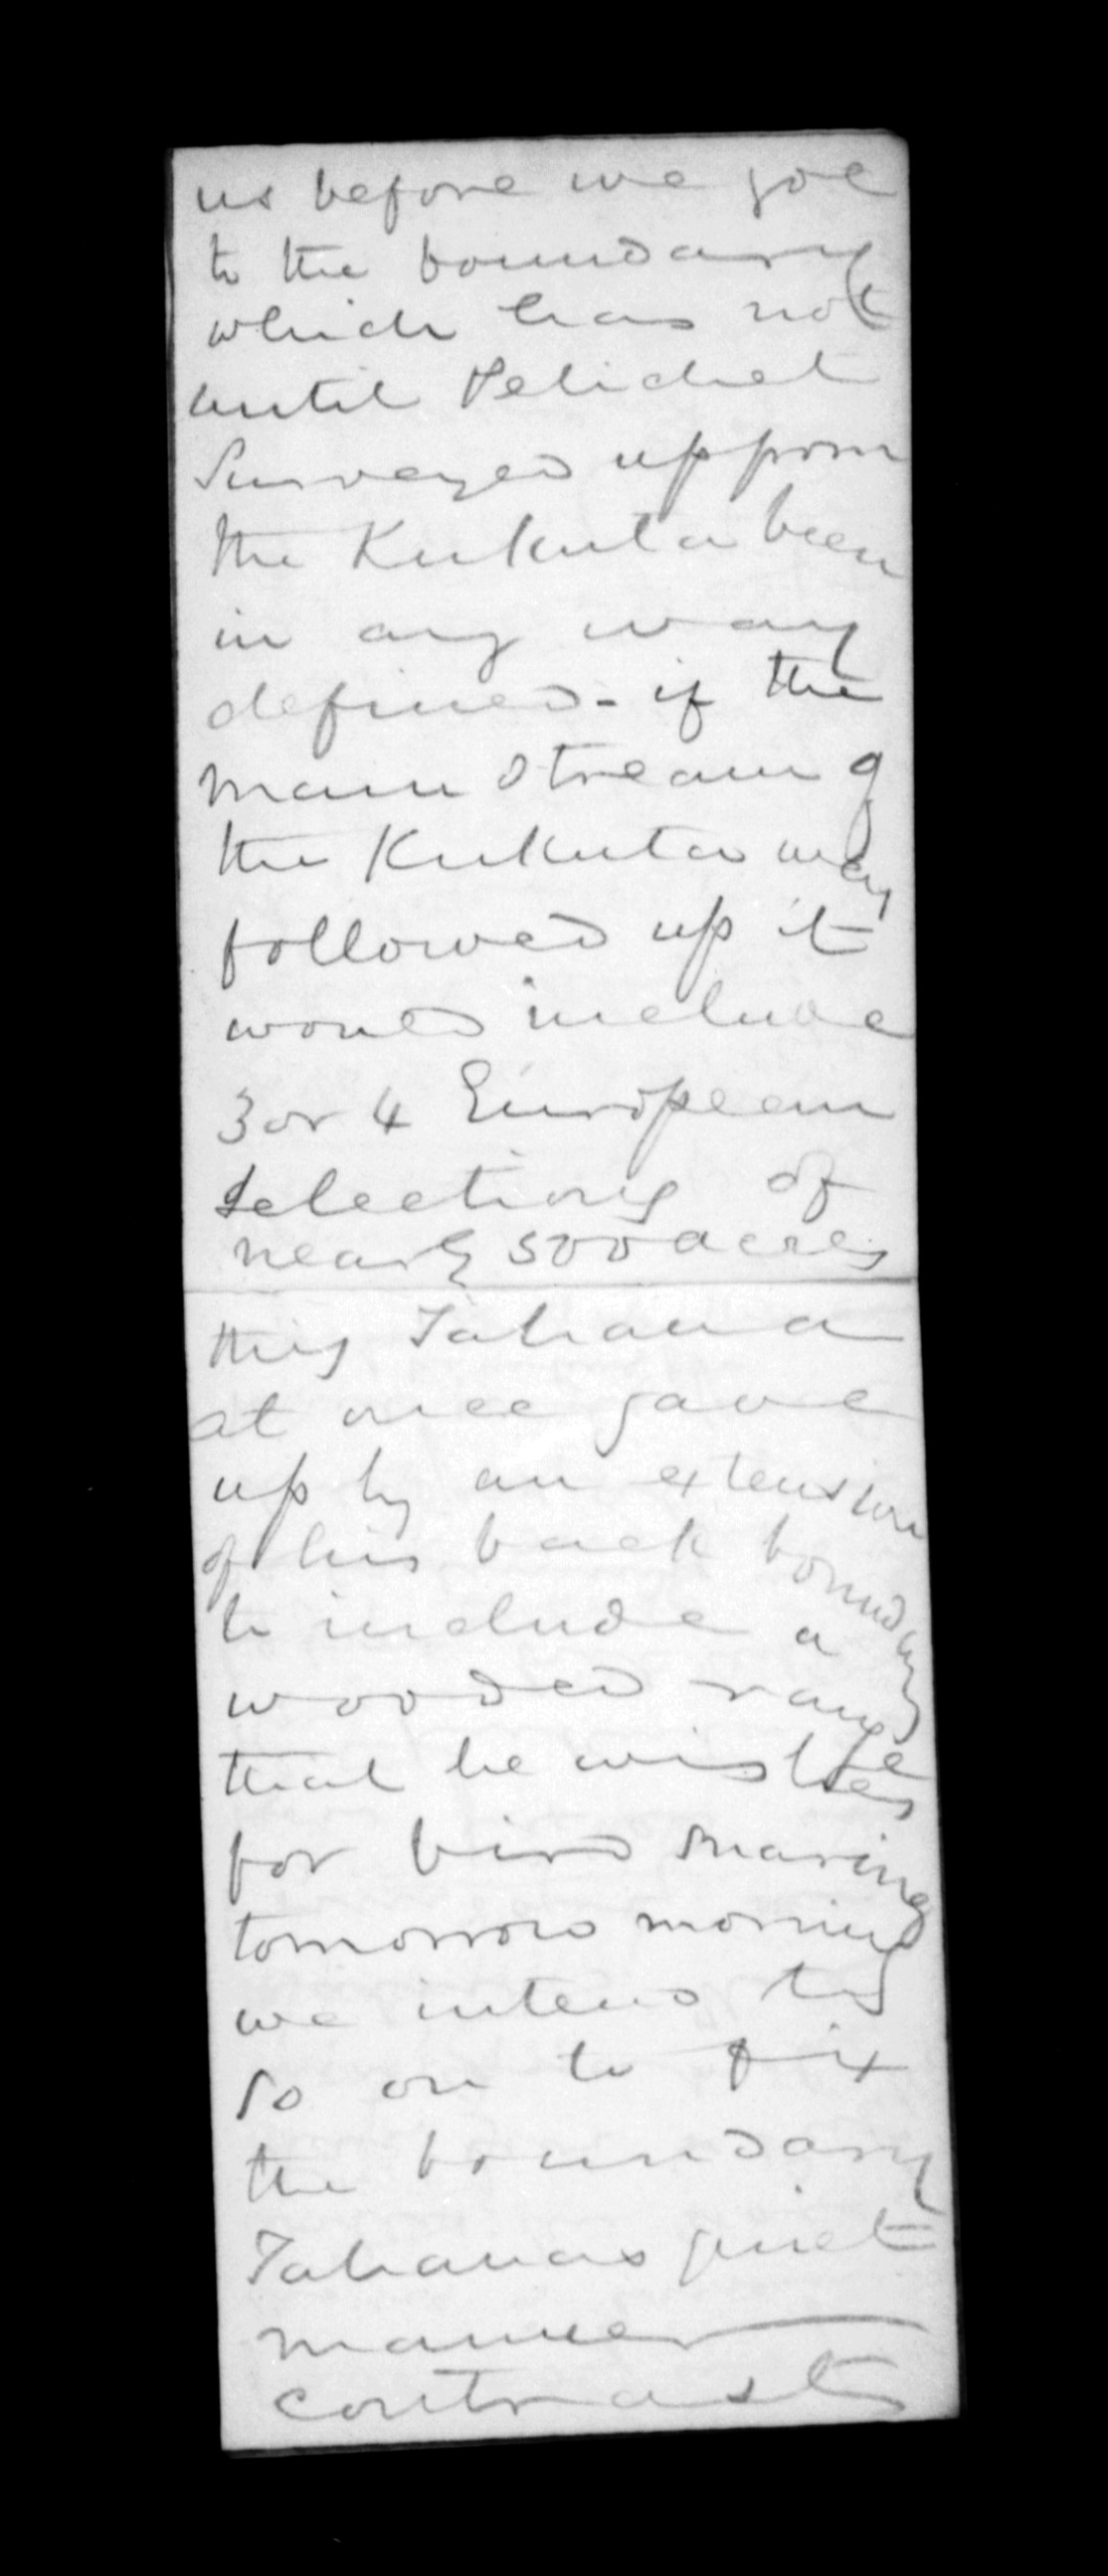 us before we got
to the boundary
which has not
until Pelichet
Surveyed up from
the Kukuta been
in any way
defined - if the
main stream of
the Kukuta way
followed up it
would include
3 or 4 European
Selections of
nearly 500 acres
this Tahana
at once gave
up by an extension
of his back boundary
to include a
wooded range
that he wishes
for bird snaring
tomorrow morning
we intend to
go on to fix
the boundary
Tahanas quiet
manner
contrasts